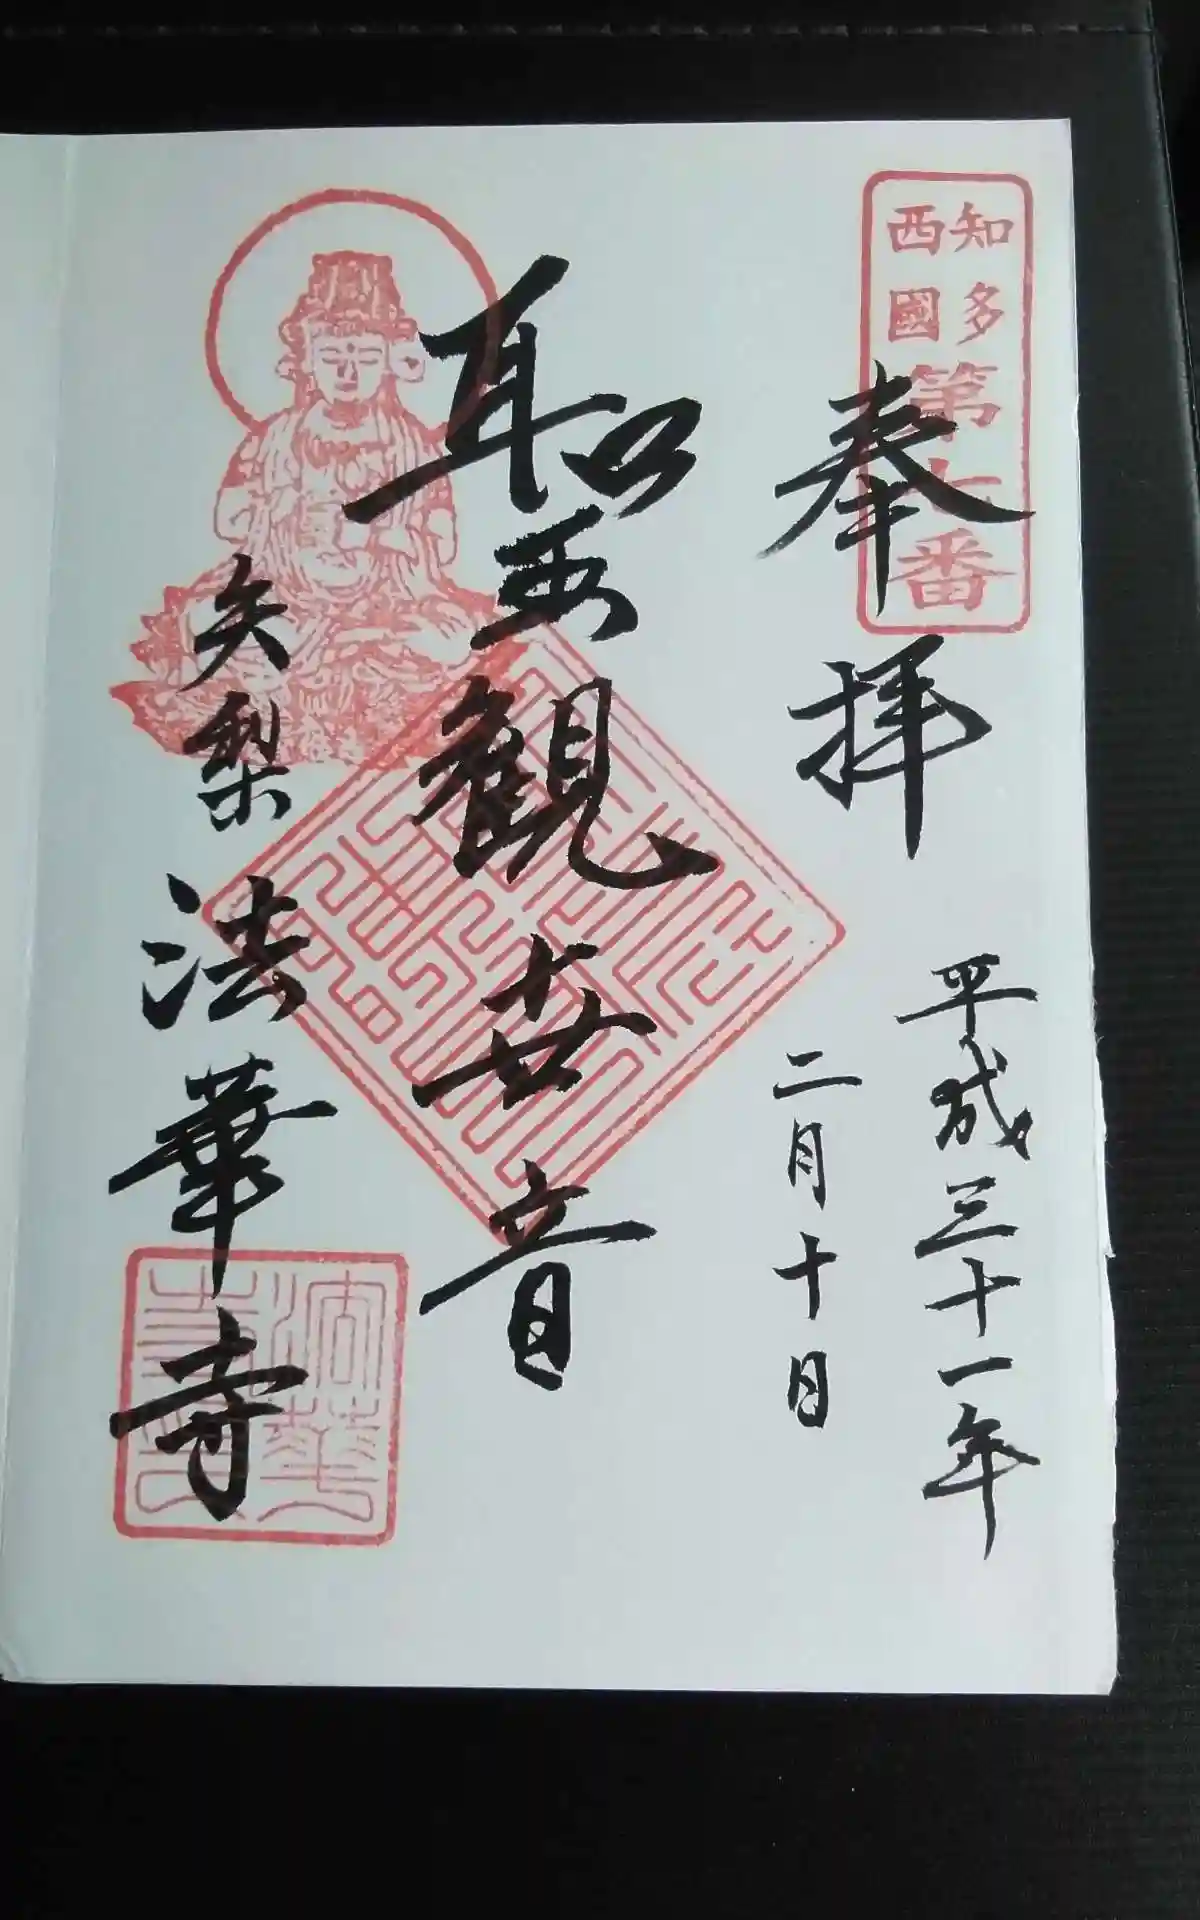 知多
西國
第七番
奉拝
平成三十一年
二月十日
聖観世音
矢梨
法華寺
法華
寺印